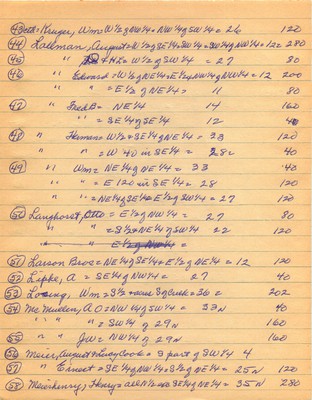 Kruger, Wm = W½ of NW¼ = NW¼ of SW¼ = 26 120
(44) Lallman, August = W½ of SE¼ = SW¼ = SW¼ of NW¼ = 12 = 280
(45) " & H.L = W½ of SW¼ = 27 80
(46) " Edward = W½ of NW¼ = E½ of NW¼ of NW¼ = 12 200
" " = E½ of NE¼ = 11 80
(47) " Fred B = NE¼ 14 160
" " = SE¼ of SE¼ 12 40
(48) " Herman = W½ = SE¼ of NE¼ = 28 120
" " = W 40 in SE¼ = 28 = 40
(49) " Wm = NE¼ of NE¼ = 33 40
" " = E 120 in SE¼ = 28 120
" " = NE¼ of SE¼ = E½ of SW¼ = 27 120
(50) Langhorst, Otto = E½ of NW¼ = 27 80
" " = S½ = NW¼ of SW¼ 22 120
" " = E½ of NW¼ =
(51) Larson Bros = NE¼ of SE¼ = E½ of NE¼ = 12 120
(52) Lipke, A = SE¼ of NW¼ = 27 40
(53) Wm = S½ = S of Creek = 36 = 202
(54) Mc Mullen, A O = NW¼ of SW¼ = 33 N 40
" " " = SW¼ of 29 N 160
(55) " JW = NW¼ of 29 N 160
(56) Meier, August & Lucy Cook = S part of SW F¼ 4
(57) " Ernest = SE¼ of NW¼ = S½ of NE¼ = 25 N 120
(58) Meierhenry, Henry = all N½ = SE¼ of NE¼ = 35 N 280